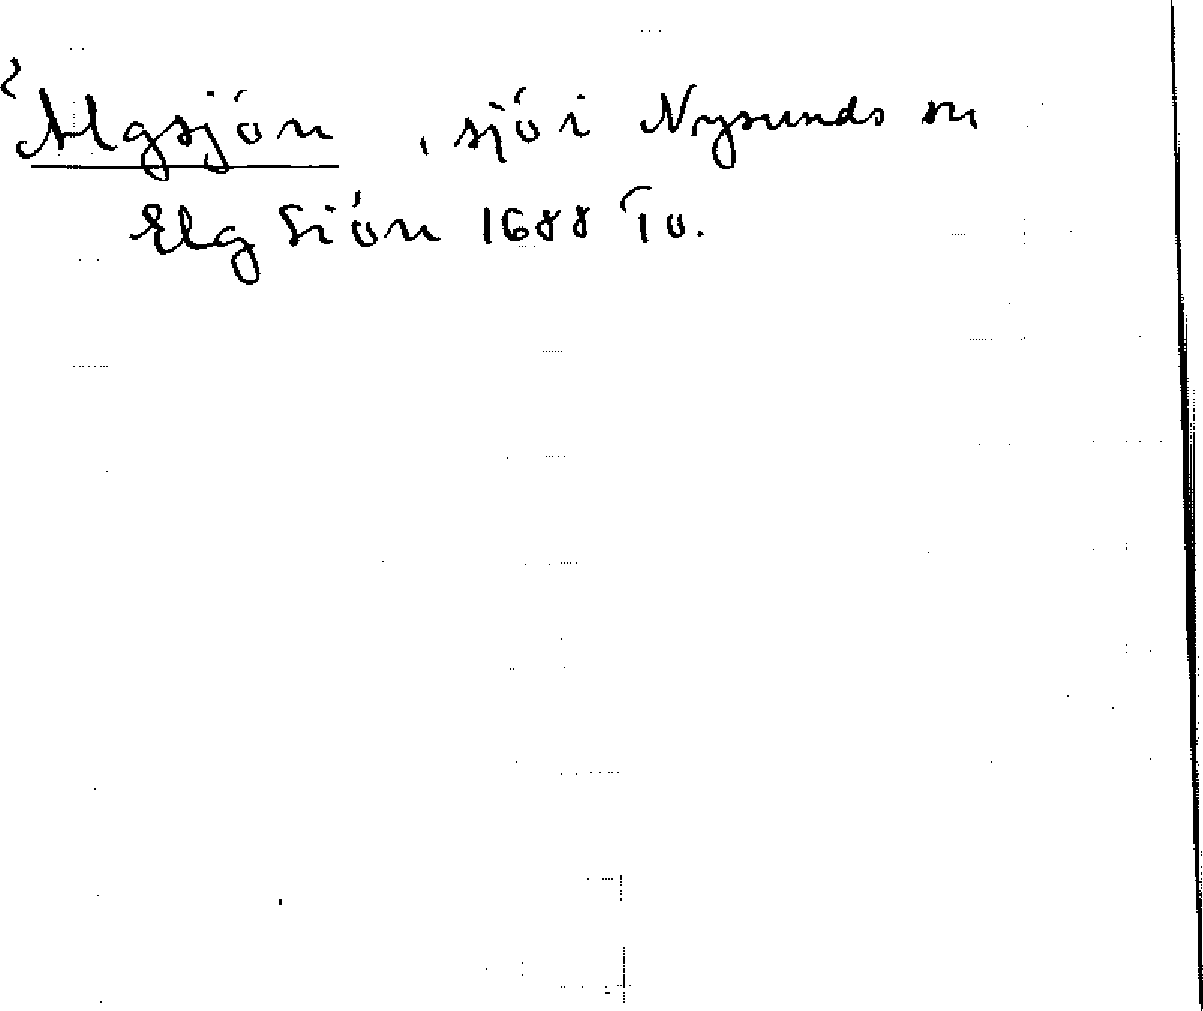 ? Älgsjön, sjö i Nysunds sn
Elg Siön 1688 To.